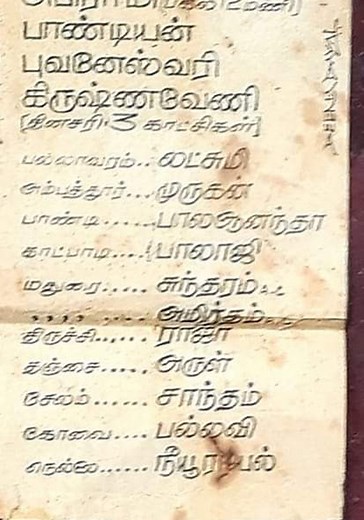 பாண்டியன்
புவனேஸ்வரி
கிருஷ்ணவேணி
[தினசரி 3 காட்சிகள்]
பல்லாவரம்...லட்சுமி
அம்பத்தூர்...முருகன்
பாண்டி......பாலஆனந்தா
காட்பாடி....பாலாஜி
மதுரை.....சுந்தரம்
,, ,,.....அமிர்தம்
திருச்சி......ராஜா
தஞ்சை.....அருள்
சேலம்......சாந்தம்
கோவை....பல்லவி
நெல்லை......நியூராயல்